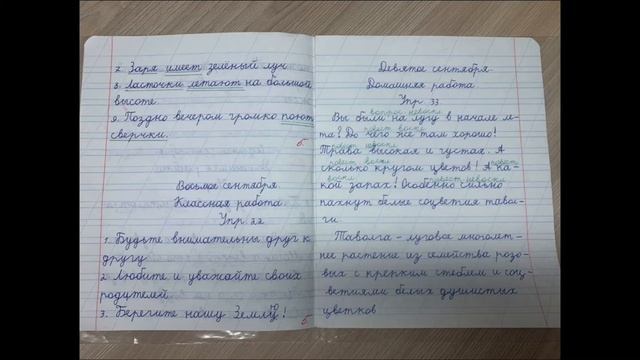 2. Заря имеет зелёный луч.
3. Ласточки летают на большой
высоте.
9. Поздно вечером громко поют
сверчки.
Восьмое сентября.
Классная работа
Упр 22
1. Будьте внимательны друг к
другу
2 Любите и уважайте своих
родителей.
3. Берегите нашу Землю!
Девятое сентября.
Домашняя работа.
Упр. 33
вопрос невоскл
Вы были на лугу в начале ле-
повест воскл
та? До чего же там хорошо!
повест невоскл
Трава высокая и густая. А
повест воскл повест
сколько кругом цветов! А ка-
воскл повест невоскл
кой запах! Особенно сильно
пахнут белые соцветия тавол-
ги.
Таволга - луговое многолет-
нее растение из семейства розо-
вых с крепким стеблем и соц-
ветиями белых душистых
цветков